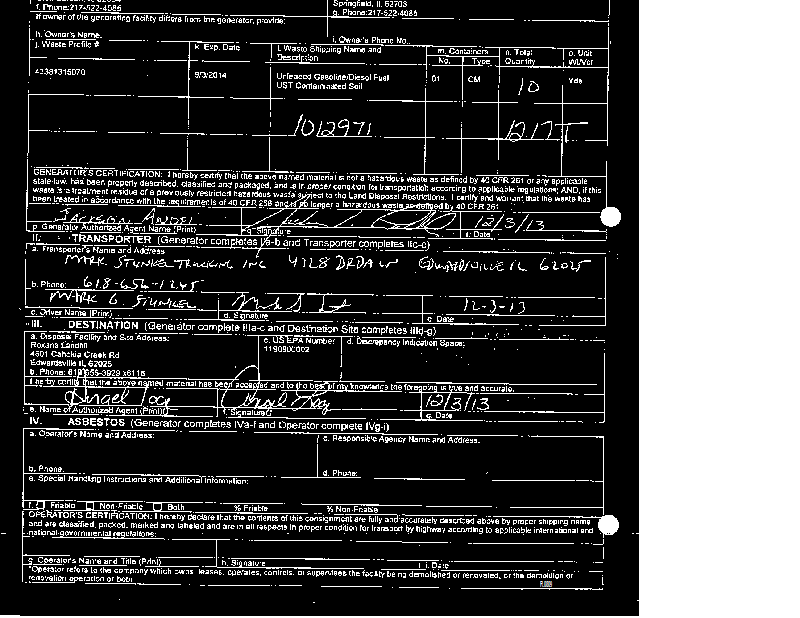 f. Phone:217-522-4086
Springfield, IL 62703
g. Phone:217-522-4086
If owner of the generating facility differs from the generator, provide:
h. Owner's Name. i. Owner's Phone No.
j. Waste Profile # k. Exp. Date l. Waste Shipping Name and Description m. Containers n. Total Quantity o. Unit Wt/Vol
No. Type
9/3/2014 Unleaded Gasoline/Diesel Fuel 01 CM 10 Yds
UST Contaminated Soil
1012971
GENERATOR'S CERTIFICATION: I hereby certify that the above named material is not a hazardous waste as defined by 40 CFR 261 or any applicable
state law, has been properly described, classified and packaged, and is in proper condition for transportation according to applicable regulations; AND, if this
waste is a treatment residue of a previously restricted hazardous waste subject to the Land Disposal Restrictions. I certify and warrant that the waste has
been treated in accordance with the requirements of 40 CFR 268 and is no longer a hazardous waste as defined by 40 CFR 261.
12/3/13
p. Generator Authorized Agent Name (Print) q. Signature r. Date
II. TRANSPORTER (Generator completes IIa-b and Transporter completes IIc-e)
a. Transporter's Name and Address
MARK STUNKEL TRUCKING INC 4728 EDWARDSVILLE IL 62025
b. Phone: 618-656-1245
MARK STUNKEL 12-3-13
c. Driver Name (Print) d. Signature e. Date
III. DESTINATION (Generator complete IIIa-c and Destination Site completes IIId-g)
a. Disposal Facility and Site Address: c. US EPA Number d. Discrepancy Indication Space:
Roxana Landfill 1190900002
4601 Cahokia Creek Rd
Edwardsville IL 62025
b. Phone: 618 656-3929 x6116
I hereby certify that the above named material has been accepted and to the best of my knowledge the foregoing is true and accurate.
12/3/13
e. Name of Authorized Agent (Print) f. Signature g. Date
IV. ASBESTOS (Generator completes IVa-f and Operator complete IVg-i)
a. Operator's Name and Address: c. Responsible Agency Name and Address:
b. Phone: d. Phone:
e. Special Handling Instructions and Additional Information:
f. Friable Non-Friable Both % Friable % Non-Friable
OPERATOR'S CERTIFICATION: I hereby declare that the contents of this consignment are fully and accurately described above by proper shipping name
and are classified, packed, marked and labeled and are in all respects in proper condition for transport by highway according to applicable international and
national governmental regulations.
g. Operator's Name and Title (Print) h. Signature i. Date
*Operator refers to the company which owns, leases, operates, controls, or supervises the facility being demolished or renovated, or the demolition or
renovation operation or both